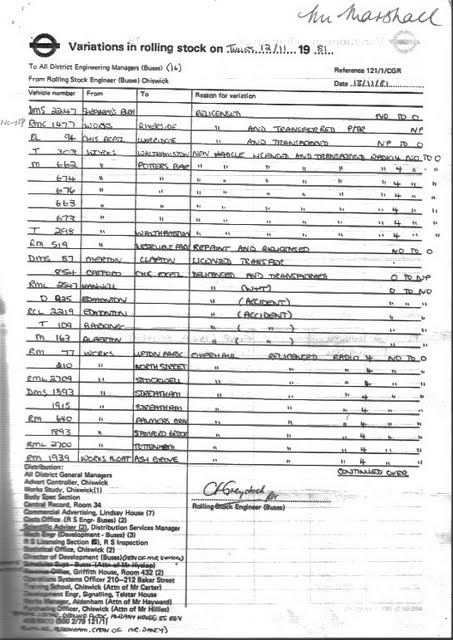 Mr Marshall
Variations in rolling stock on Tues. 12/11 1981.
To All District Engineering Managers (Buses) (16)
Reference 121/1/CGR
From Rolling Stock Engineer (Buses) Chiswick
Date 13/11/81
Vehicle number From To Reason for variation
DMS 2247 RELICENSED NO TO O
RMC 1477 WORKS RIVERSIDE " AND TRANSFERRED NP
RL 94 CHIS EXPTL UXBRIDGE " AND TRANSFERRED NP TO O
T 303 WORKS WALTHAMSTOW NEW VEHICLE LICENCED AND TRANSFERRED RADIO 4 NO TO O
M 662 " POTTERS BAR " " " " 4 " "
674 " " " " " " 4 " "
676 " " " " " " 4 " "
663 " " " " " " 4 " "
673 " " " " " " 4 " "
T 298 " WALTHAMSTOW " " " " 4 " "
RM 519 " REPAINT AND RELICENSED NO TO O
DMS 87 MERTON CLAPTON LICENSED TRANSFER
854 CATFORD CHIS EXPTL DELICENSED AND TRANSFERRED O TO NP
RML 2547 HANWELL " O TO NO
D 925 EDMONTON " (ACCIDENT) " "
RCL 2219 EDMONTON " (ACCIDENT) " "
T 109 BARKING " ( " ) " "
M 163 ALPERTON " ( " ) " "
RM 77 WORKS UPTON PARK OVERHAUL RELICENSED RADIO 4 NO TO O
210 " NORTH STREET " " " 4 " "
RML 2709 " STOCKWELL " " " 4 " "
DMS 1393 " STREATHAM " " " 4 " "
1915 " STREATHAM " " " 4 " "
RM 640 " PALMERS GRN " " " 4 " "
1893 " STAMFORD BROOK " " " 4 " "
RML 2700 " TOTTENHAM " " " 4 " "
RM 1939 WORKS FLOAT ASH GROVE " " " 4 " "
CONTINUED OVER
Distribution:
All District General Managers
Advert Controller, Chiswick
Works Study, Chiswick(1)
Body Spec Section
Central Record, Room 34
Commercial Advertising, Lindsay House (7)
Costs Office (R S Engr- Buses) (2)
Scientific Adviser (2), Distribution Services Manager
Mech Engr (Development - Buses) (3)
R S Licensing Section (5), R S Inspection
Statistical Office, Chiswick (2)
Director of Development (Buses)
Schedules Supt - Buses (Attn of Mr Hyslop)
Office, Griffith House, Room 432 (2)
Operations Systems Officer 210-212 Baker Street
Training School, Chiswick (Attn of Mr Carter)
Development Engr, Signalling, Telstar House
Works Manager, Aldenham (Attn of Mr Hayward)
Purchasing Officer, Chiswick (Attn of Mr Hillier)
Rolling Stock Engineer (Buses)
(500 2/79 121/1)